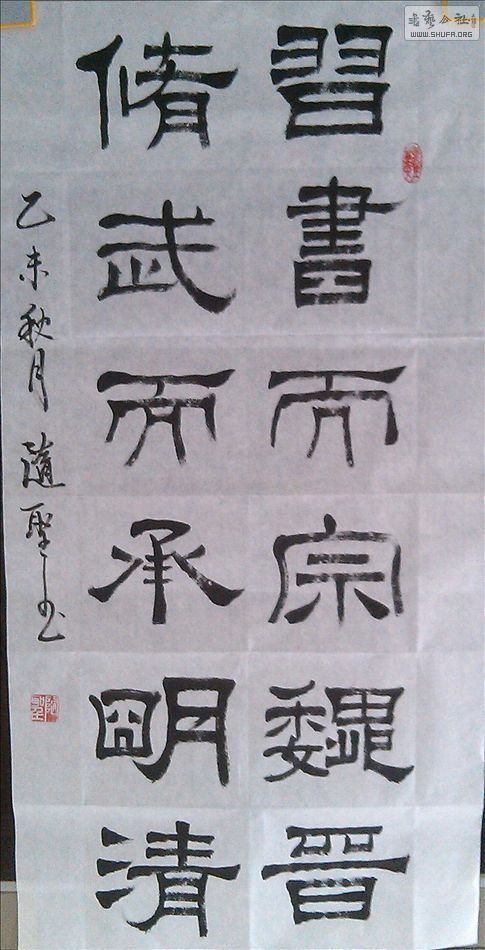 習書而宗魏晉
脩武而承明清
乙未秋月隨聖书
书艺公社
WWW.SHUFA.ORG